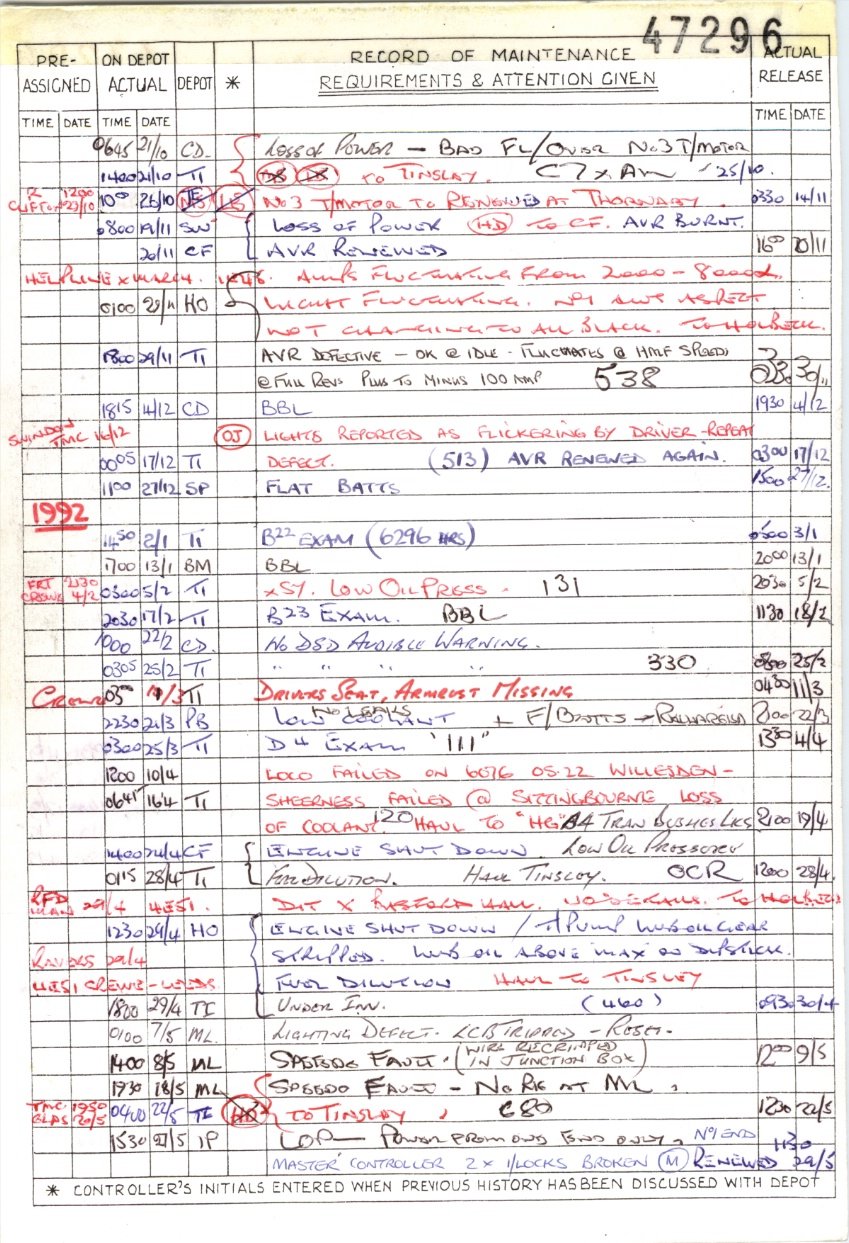 47296
PRE- ASSIGNED ON DEPOT ACTUAL DEPOT * RECORD OF MAINTENANCE REQUIREMENTS & ATTENTION GIVEN ACTUAL RELEASE
TIME DATE TIME DATE TIME DATE
0645 21/10 CD LOSS OF POWER - BAD FL/OVER NO3 T/MOTOR
1400 21/10 TI TO TINSLEY. 25/10.
1200 23/10 10 00 26/10 NO 3 T/MOTOR TO RENEWED AT THORNABY. 0330 14/11
0800 19/11 SW LOSS OF POWER HD TO CF. AVR BURNT.
20/11 CF AVR RENEWED 16 00 20/11
HELPLINE X MARCH. 1546. AMPS FLUCTUATING FROM 2000 - 8000
0100 29/11 HO LIGHT FLUCTUATING. NO1 AWS ASPECT
NOT CHANGING TO ALL BLACK. TO HOLBECK.
1800 29/11 TI AVR DEFECTIVE - OK @ IDLE - FLUCTUATES @ HALF SPEED,
@ FULL REVS PLUS TO MINUS 100 AMP 538 30/11
1815 4/12 CD BBL 1930 4/12
SWINDON TMC 16/12 OJ LIGHTS REPORTED AS FLICKERING BY DRIVER - REPEAT
0005 17/12 TI DEFECT. (513) AVR RENEWED AGAIN. 0300 17/12
1100 27/12 SP FLAT BATTS 1500 27/12.
1992
1450 2/1 TI B22 EXAM (6296 HRS) 0500 3/1
1700 13/1 BM BBL 2000 13/1
CREWE 2130 4/2 0300 5/2 TI XSY. LOW OIL PRESS. 131 2030 5/2
2030 17/2 TI B23 EXAM. BBL 1130 18/2
1000 22/2 CD. NO DSD AUDIBLE WARNING.
0305 25/2 TI " " " " 330 0800 25/2
CREWE 0300 11/3 TI DRIVERS SEAT, ARMREST MISSING 0430 11/3
NO LEAKS
2230 21/3 PB LOW COOLANT + F/BATTS → 2100 22/3
0300 25/3 TI D4 EXAM "111" 1330 4/4
1200 10/4 LOCO FAILED ON 6O76 05.22 WILLESDEN -
0641 16/4 TI SHEERNESS FAILED @ SITTINGBOURNE LOSS
OF COOLANT 120 HAUL TO "HG" A4 TRAN BUSHES LKS 2100 19/4
1400 24/4 CF ENGINE SHUT DOWN LOW OIL PRESSURE
0115 28/4 TI FUEL DILUTION. HAUL TINSLEY. OCR 1200 28/4.
29/4 4E51. HAUL. TO HOLBECK
1230 29/4 HO ENGINE SHUT DOWN / PUMP
STRIPPED. LUB OIL ABOVE MAX ON DIPSTICK.
29/4
4E51 CREWE - LEEDS FUEL DILUTION HAUL TO TINSLEY
1800 29/4 TI UNDER INV. (460) 0930 30/4
0100 7/5 ML. LIGHTING DEFECT. LCB TRIPPED - RESET.
1400 8/5 ML SPEEDO FAULT. (WIRE RECRIMPED IN JUNCTION BOX) 1200 9/5
1930 18/5 ML SPEEDO FAULT - NO RE AT ML.
TMC GLAS 1950 20/5 0400 22/5 TI TO TINSLEY, C80 1230 22/5
1530 27/5 IP LOP - POWER FROM ONE END ONLY. NO1 END 1130
MASTER CONTROLLER 2 X I/LOCKS BROKEN (M) RENEWED 29/5
* CONTROLLER'S INITIALS ENTERED WHEN PREVIOUS HISTORY HAS BEEN DISCUSSED WITH DEPOT